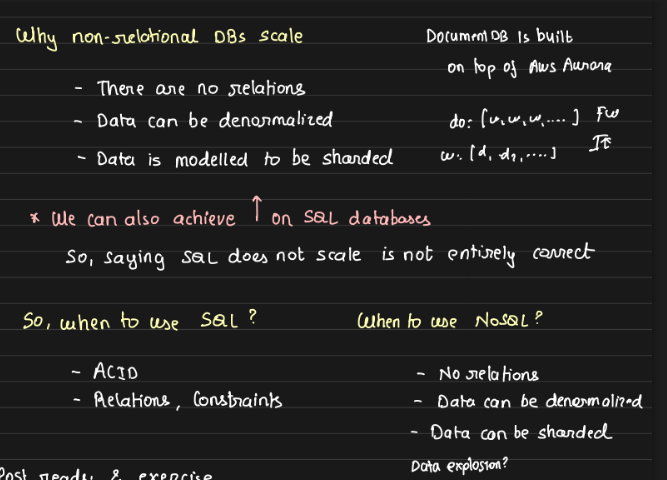 Why non-relational DBs scale
- There are no relations
- Data can be denormalized
- Data is modelled to be sharded
Document DB Is built
on top of Aws Aurora
do: [w, w, w, .... ] Fw
w: [d, d₂, ....]
* We can also achieve ↑ on SQL databases
So, saying SQL does not scale is not entirely correct
So, when to use SQL?
- ACID
- Relations, Constraints
When to use NoSQL?
- No relations
- Data can be denormalized
- Data can be sharded
Data explosion?
Post reads & exercise